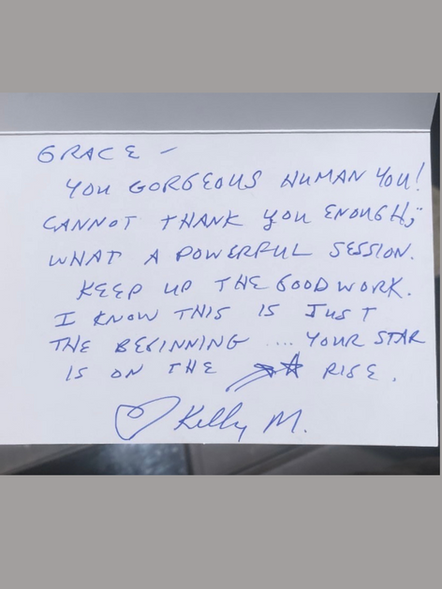 GRACE —
YOU GORGEOUS HUMAN YOU!
CANNOT THANK YOU ENOUGH;
WHAT A POWERFUL SESSION.
KEEP UP THE GOOD WORK.
I KNOW THIS IS JUST
THE BEGINNING .... YOUR STAR
IS ON THE RISE.
Kelly M.